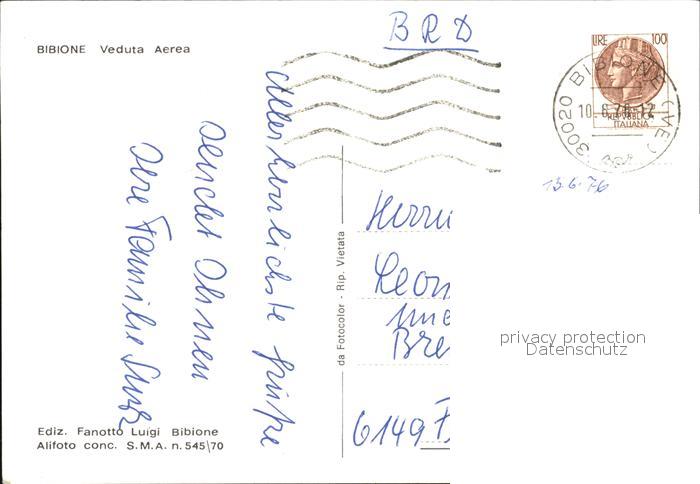 BRD
BIBIONE Veduta Aerea
LIRE 100
REPUBBLICA
ITALIANA
30020 BIBIONE (VE)
10.6.76-12
13.6.76
Allerherzlichste Grüße
sendet Ihnen
Ihre Familie
da Fotocolor - Rip. Vietata
Herrn
Leon
Bre
6149 F
privacy protection
Datenschutz
Ediz. Fanotto Luigi Bibione
Alifoto conc. S.M.A. n. 545\70